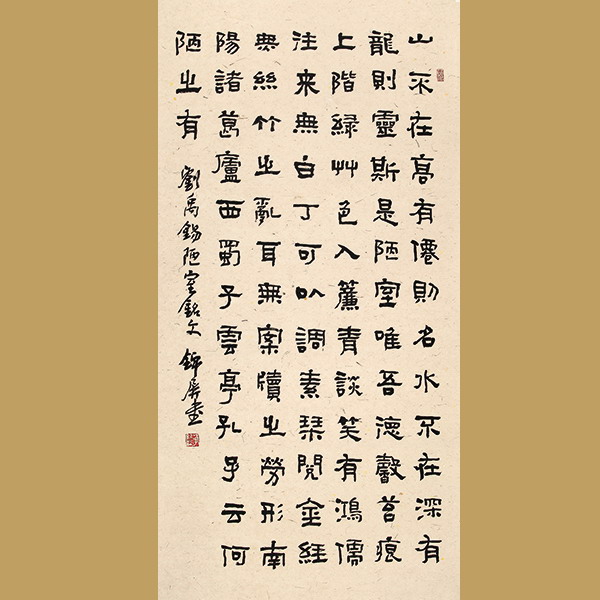 山不在高有僊則名水不在深有
龍則靈斯是陋室唯吾德馨苔痕
上階緑艸色入簾青談笑有鴻儒
往来無白丁可以調素琴閱金經
無絲竹之亂耳無案牘之勞形南
陽諸葛廬西蜀子雲亭孔子云何
陋之有 劉禹錫陋室銘文